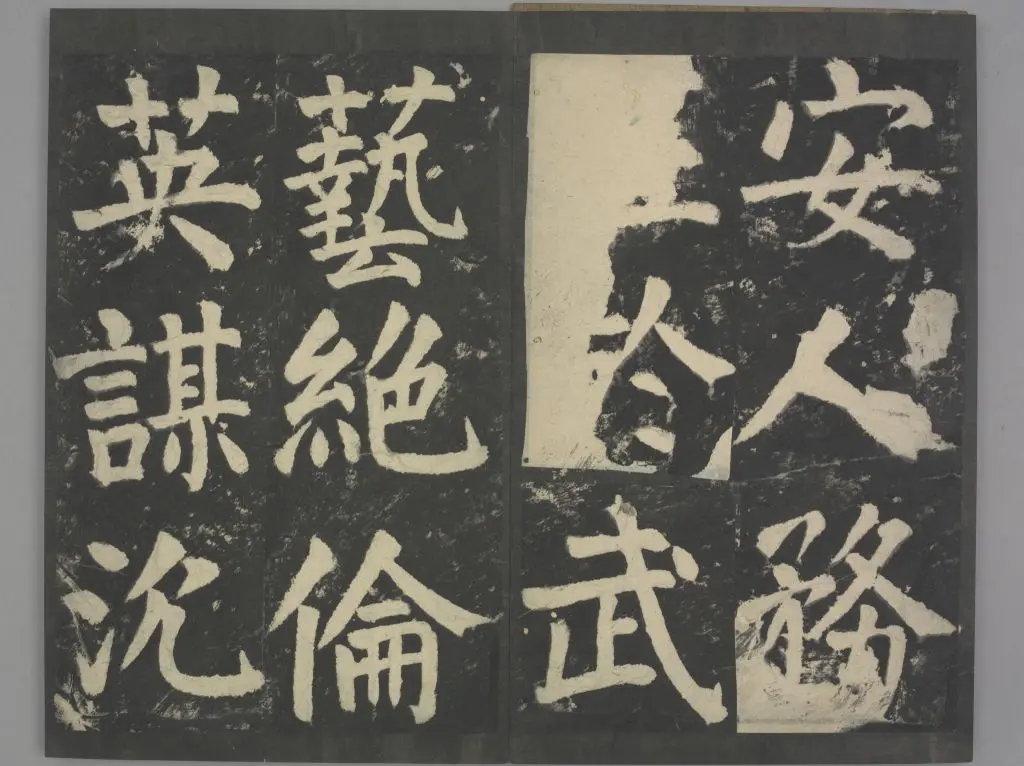 安人務
武
藝絕倫
英謀沉